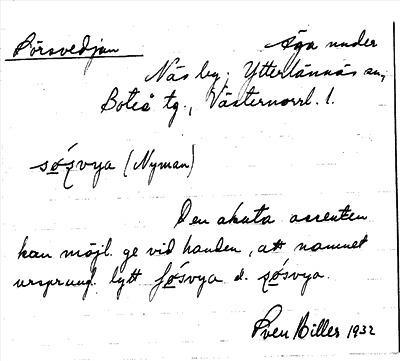 Sörsvedjan Äga under
Näs by, Ytterlännäs sn,
Boteå tg., Västernorrl. l.
(Nyman)
Den akuta accenten
kan möjl. ge vid handen, att namnet
ursprungl. lytt
Sven Biller 1932